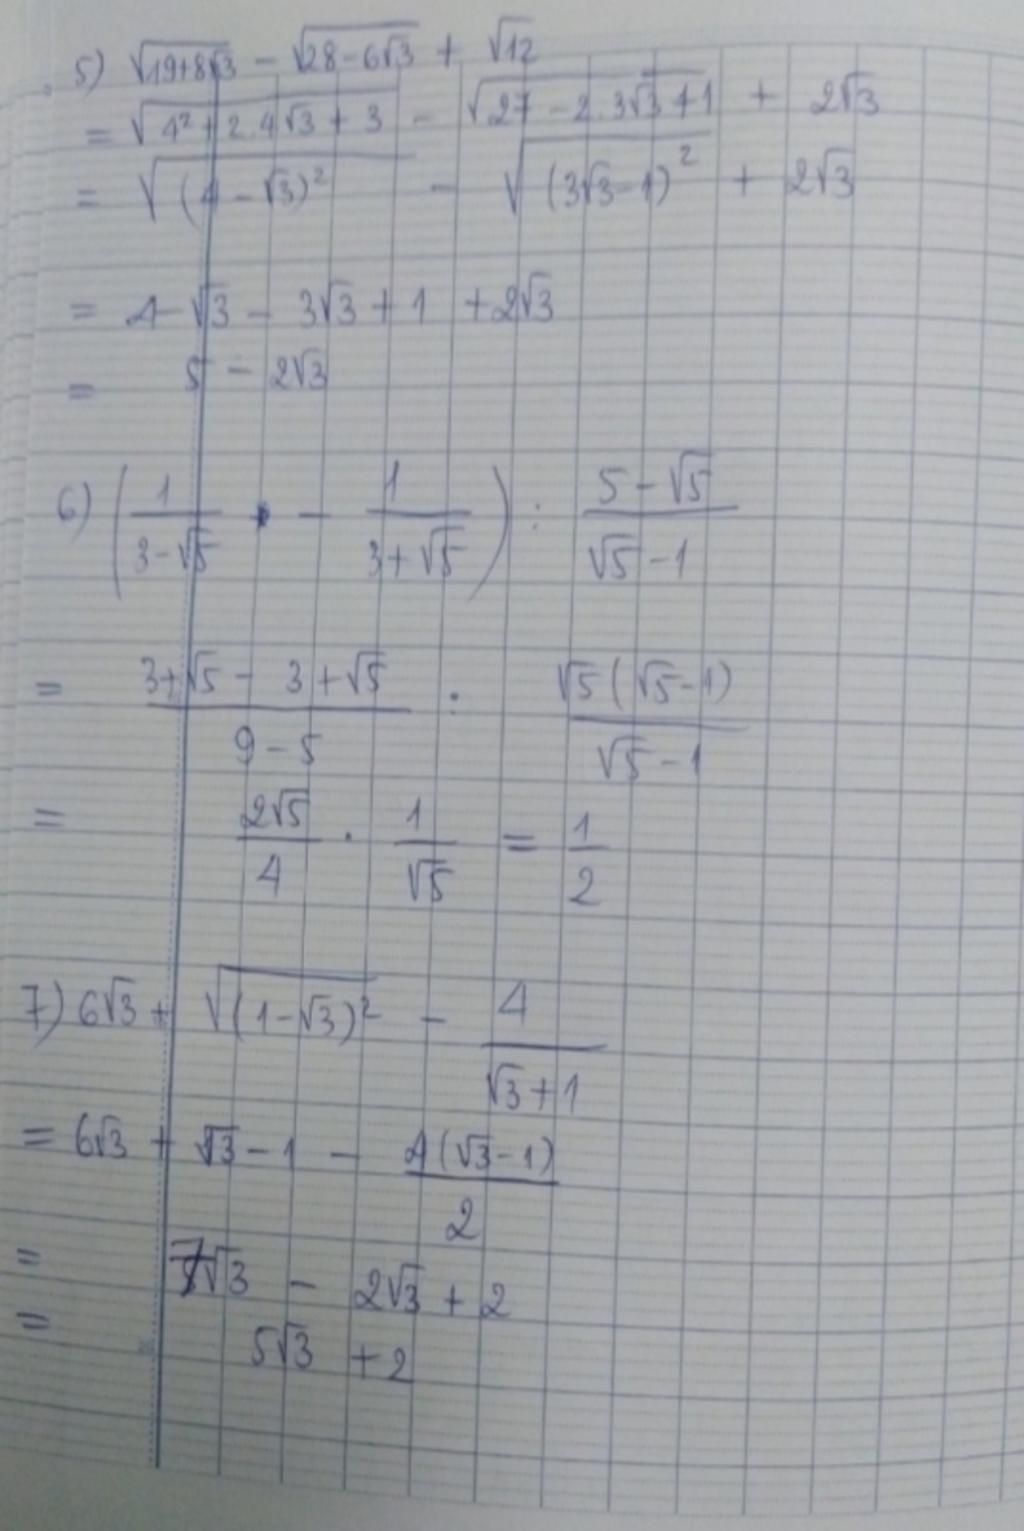 5) √(19+8√3) - √(28-6√3) + √12
= √(4² + 2.4√3 + 3) - √(27 - 2.3√3 + 1) + 2√3
= √((4-√3)²) - √((3√3-1)²) + 2√3
= 4-√3 - 3√3 + 1 + 2√3
= 5 - 2√3
6) (1/(3-√5) - 1/(3+√5)) : (5-√5)/(√5-1)
= (3+√5 - 3+√5)/(9-5) : √5(√5-1)/(√5-1)
= 2√5/4 . 1/√5 = 1/2
7) 6√3 + √((1-√3)²) - 4/(√3+1)
= 6√3 + √3-1 - 4(√3-1)/2
= 7√3 - 2√3 + 2
= 5√3 + 2